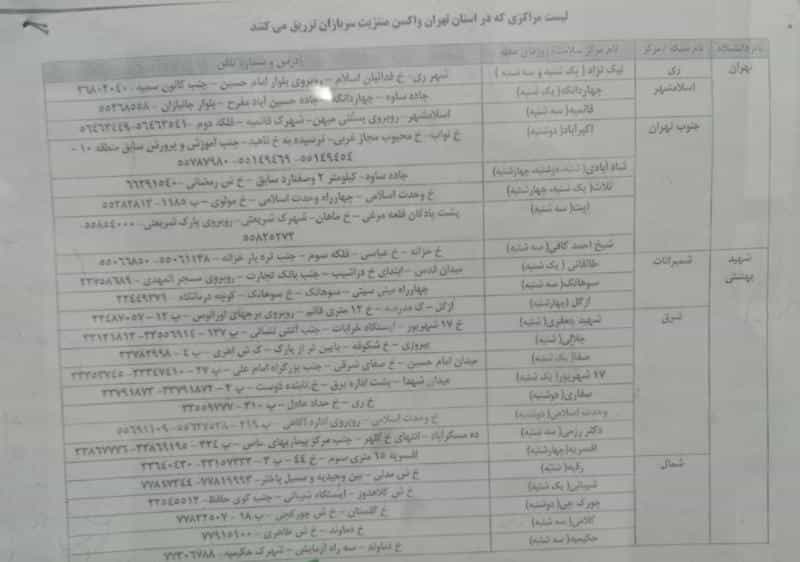 لیست مراکزی که در استان تهران واکسن مننژیت سربازان تزریق می کنند
نام دانشگاه نام شبکه / مرکز نام مرکز سلامت/ روزهای آدرس و شماره تلفن
تهران ری نیک نژاد ( یک شنبه و سه شنبه ) شهر ری - خ فدائیان اسلام - روبروی بلوار امام حسین - جنب کانون سمیه - ۳۶۸۰۲۰۴۰
اسلامشهر چهاردانگه( یک شنبه) جاده ساوه - چهاردانگه - جاده حسین آباد مفرح - بلوار جانبازان - ۵۵۲۶۸۵۵۸
قائمیه( سه شنبه) اسلامشهر - روبروی بستنی میهن- شهرک قائمیه - فلکه دوم - ۵۶۴۶۳۵۴۱-۵۶۴۶۳۴۴۹
جنوب تهران اکبرآباد( دوشنبه) خ نواب- خ محبوب مجاز غربی- نرسیده به خ ناهید - جنب آموزش و پرورش سابق منطقه ۱۰ -
۵۵۱۴۹۴۵۴ - ۵۵۱۴۹۴۶۹ - ۵۵۷۸۷۹۸۰
شاد آبادی( شنبه، دوشنبه، چهارشنبه) جاده ساوه- کیلومتر ۲ وصفنارد سابق - خ ش رمضانی - ۶۶۲۹۱۵۴۰
ثلاث( یک شنبه، چهارشنبه) خ وحدت اسلامی - چهارراه وحدت اسلامی - خ مولوی - پ ۱۱۸۵ - ۵۵۳۸۲۸۱۳
ابوذ( سه شنبه) پشت پادگان قلعه مرغی - خ ماهان- شهرک شریعتی- روبروی پارک شریعتی- ۵۵۸۵۴۰۰۰ -
۵۵۸۲۵۲۷۳
شیخ احمد کافی( سه شنبه) خ خزانه - خ عباسی - فلکه سوم - جنب تره بار خزانه - ۵۵۰۶۱۱۳۸ - ۵۵۰۶۶۸۵۰
شهید بهشتی شمیرانات طالقانی ( یک شنبه) میدان قدس - ابتدای خ دزاشیب - جنب بانک تجارت - روبروی مسجد المهدی - ۲۲۷۵۸۶۸۹
سوهانک( سه شنبه) چهارراه مینی سیتی - سوهانک - خ سوهانک - کوچه درمانگاه - ۲۲۴۴۹۳۷۱
ازگل (چهارشنبه) ازگل - ک مدرسه - خ ۱۲ متری قائم - روبروی برجهای اورانوس - پ ۱۲ - ۲۲۴۸۷۰۵۷
شرق شهید جعفری( شنبه) خ ۱۷ شهریور - ایستگاه خرابات - جنب آتش نشانی - پ ۱۳۷ - ۳۳۵۵۶۹۱۴ - ۳۳۱۳۱۸۱۳
جلالی( شنبه) پیروزی - خ شکوفه - پایین تر از پارک - ک ش اصغری - پ ۴ - ۳۳۷۸۳۹۹۸
صفا( یک شنبه) میدان امام حسین - خ صفای شرقی - جنب بزرگراه امام علی - پ ۲۷ - ۳۳۳۴۷۴۱۰ - ۳۳۳۵۳۷۴۵
۱۷ شهریور( یک شنبه) میدان شهدا - پشت اداره برق - خ تابنده دوست - پ ۲ - ۳۳۷۹۱۸۷۲ - ۳۳۷۹۱۸۷۳
صفاری( دوشنبه) خ ری - خ حداد عادل - پ ۳۱۰ - ۳۳۵۵۹۷۷۷
وحدت اسلامی( دوشنبه) خ وحدت اسلامی - روبروی اداره آگاهی - پ ۲۱۹ - ۵۵۶۲۷۵۲۸ - ۵۵۶۹۱۱۰۹
دکتر رزمی( سه شنبه) ده مسگرآباد - انتهای خ گلهر - جنب مرکز بیماریهای خاص - پ ۳۳۴ - ۳۳۸۶۹۱۹۵ - ۳۳۸۶۷۷۷۶
افسریه( چهارشنبه) افسریه ۲۵ متری سوم - خ ۴۴ - پ ۳ - ۳۳۱۵۷۳۳۳ - ۳۳۶۴۰۴۳۰
شمال رقیه( شنبه) خ ش مدنی - بین وحیدیه و مسیل باختر- ۷۷۸۱۹۹۹۳ - ۷۷۸۹۷۳۴۴
شیبانی( یک شنبه) خ ش کلاهدوز - ایستگاه شیبانی - جنب کوی حافظ- ۲۲۵۴۵۵۱۲
چورک چی( دوشنبه) خ گلستان - خ ش چورکچی - پ ۱۸ - ۷۷۸۳۲۵۰۷
کلامی( سه شنبه) خ دماوند - خ ش طاهری - ۷۷۹۱۵۱۰۰
حکیمیه( سه شنبه) خ دماوند - سه راه آزمایش - شهرک حکیمیه - ۷۷۳۰۶۷۸۸